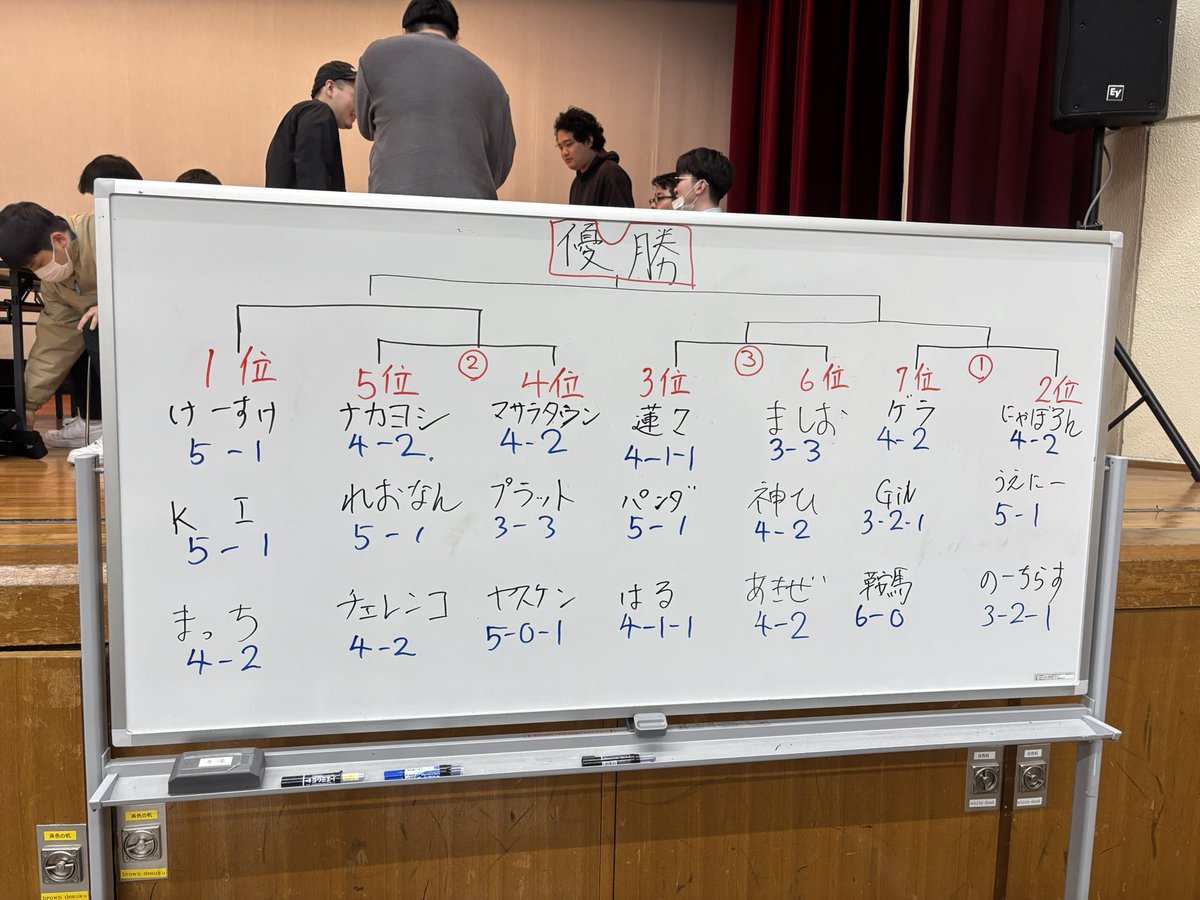 優勝
1位 5位 ② 4位 3位 ③ 6位 7位 ① 2位
けーすけ ナカヨシ マサラタウン 蓮マ ましお ゲラ にゃぽろん
5-1 4-2. 4-2 4-1-1 3-3 4-2 4-2
KI れおなん プラット パンダ 神ひ Gil うえにー
5-1 5-1 3-3 5-1 4-2 3-2-1 5-1
まっち チェレンコ ヤスケン はる あきぜ 鞍馬 のーちらす
4-2 4-2 5-0-1 4-1-1 4-2 6-0 3-2-1
EV
茶色の机
brown desuku
茶色の机
brown desuku
白色の机
white desk
白色の机
white desk